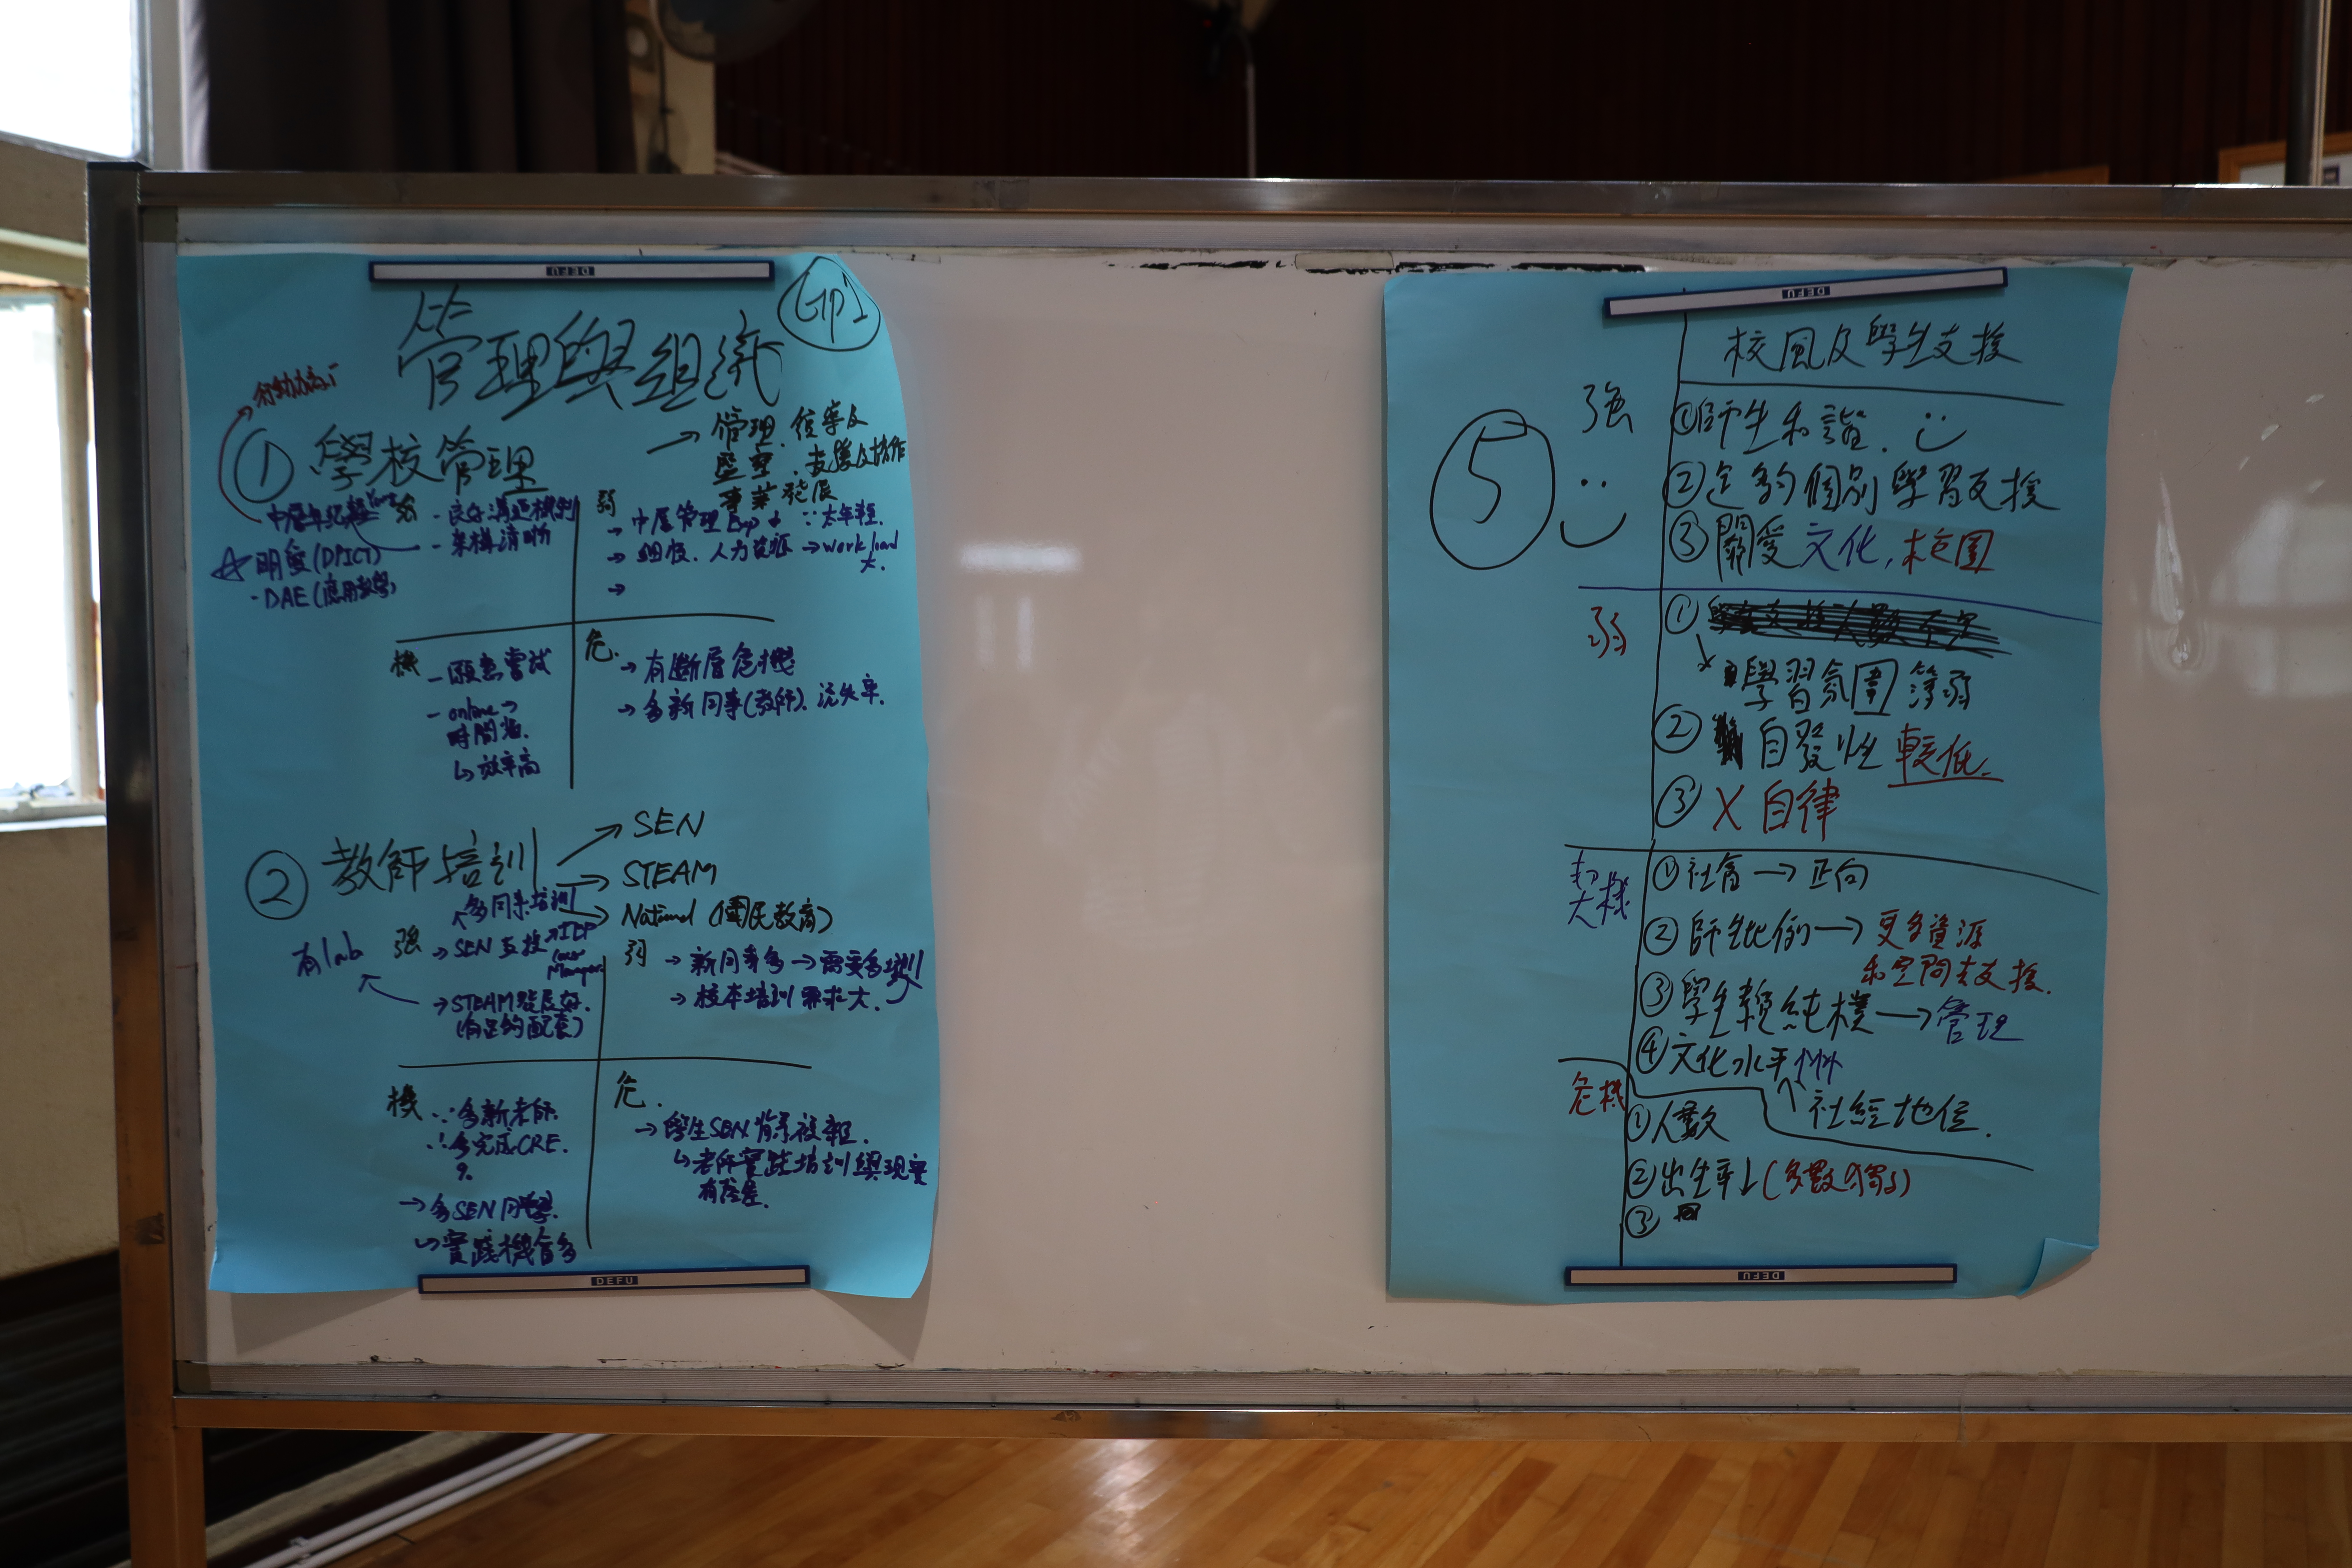 DEFU
Gp1
管理與組織
行動力高
① 學校管理
→ 管理、
支援及協作
事業發展
強
- 良好溝通機制
- 架構清晰
(DPICT)
- DAE (應用數學)
弱
→ 中層管理 Exp ↓ ∵ 太年輕.
→ 人力資源 → work load
大.
→
機
- 願意嘗試
- online →
時間
↳ 效率高
危.
→ 有斷層危機
→ 多新同事(教師). 流失率.
② 教師培訓
→ SEN
→ STEAM
→ National (國民教育)
多同事培訓
強
→ SEN 支援 → IEP
Manager
有lab
→ STEAM發展好.
(有足夠配套)
弱
→ 新同事多 → 需要多培訓
→ 校本培訓 需求大.
機
∵ 多新老師.
∴ 多完成CRE.
→ 多SEN同學.
↳ 實踐機會多
危.
→ 學生SEN
↳ 老師實踐培訓與現實
有落差.
DEFU
DEFU
校風及學生支援
⑤
強
① 師生和諧.
② 足夠個別學習支援
③ 關愛文化, 校園
弱
①
學習氛圍 薄弱
② 自發性 較低.
③ X 自律
契機
① 社會 → 正向
② 師生比例 → 更多資源
和空間去支援.
③ 學生較純樸 → 管理
④ 文化水平
社經地位.
危機
① 人數
② 出生率↓
③
DEFU